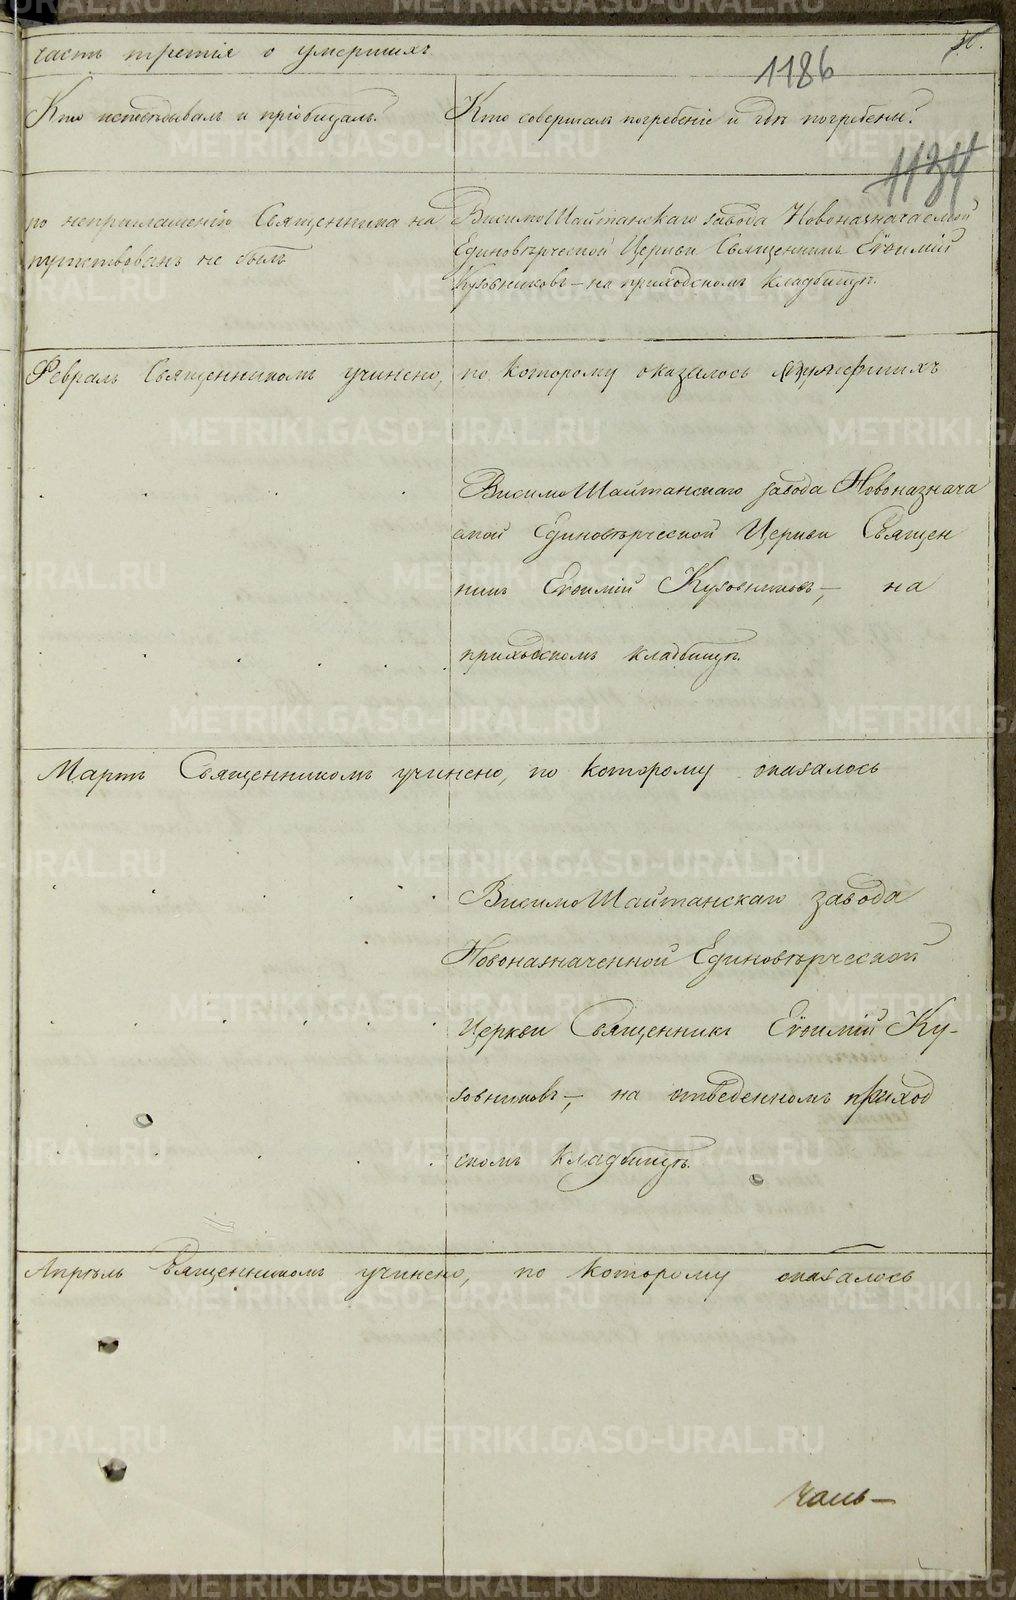 часть третія о умершихъ
1186
Кто исповѣдывалъ и пріобщалъ?
Кто совершалъ погребеніе и гдѣ погребены?
1134
по неприглашенію Священника на
путствованъ не былъ
ВисимоШайтанскаго завода Новоназначаемой
Единовѣрческой Церкви Священникъ Евѳимій
Кузовниковъ — на приходскомъ кладбищѣ.
Февраль Священникомъ учинено, по которому оказалось умершихъ
ВисимоШайтанскаго завода Новоназнача
емой Единовѣрческой Церкви Священ
никъ Евѳимій Кузовниковъ —, на
приходскомъ кладбищѣ.
Мартъ Священникомъ учинено, по которому оказалось
ВисимоШайтанскаго завода
Новоназначенной Единовѣрческой
Церкви Священникъ Евѳимій Ку-
зовниковъ —, на отведенномъ приход
скомъ кладбищѣ.
Апрѣль Священникомъ учинено, по которому оказалось
METRIKI.GASO-URAL.RU